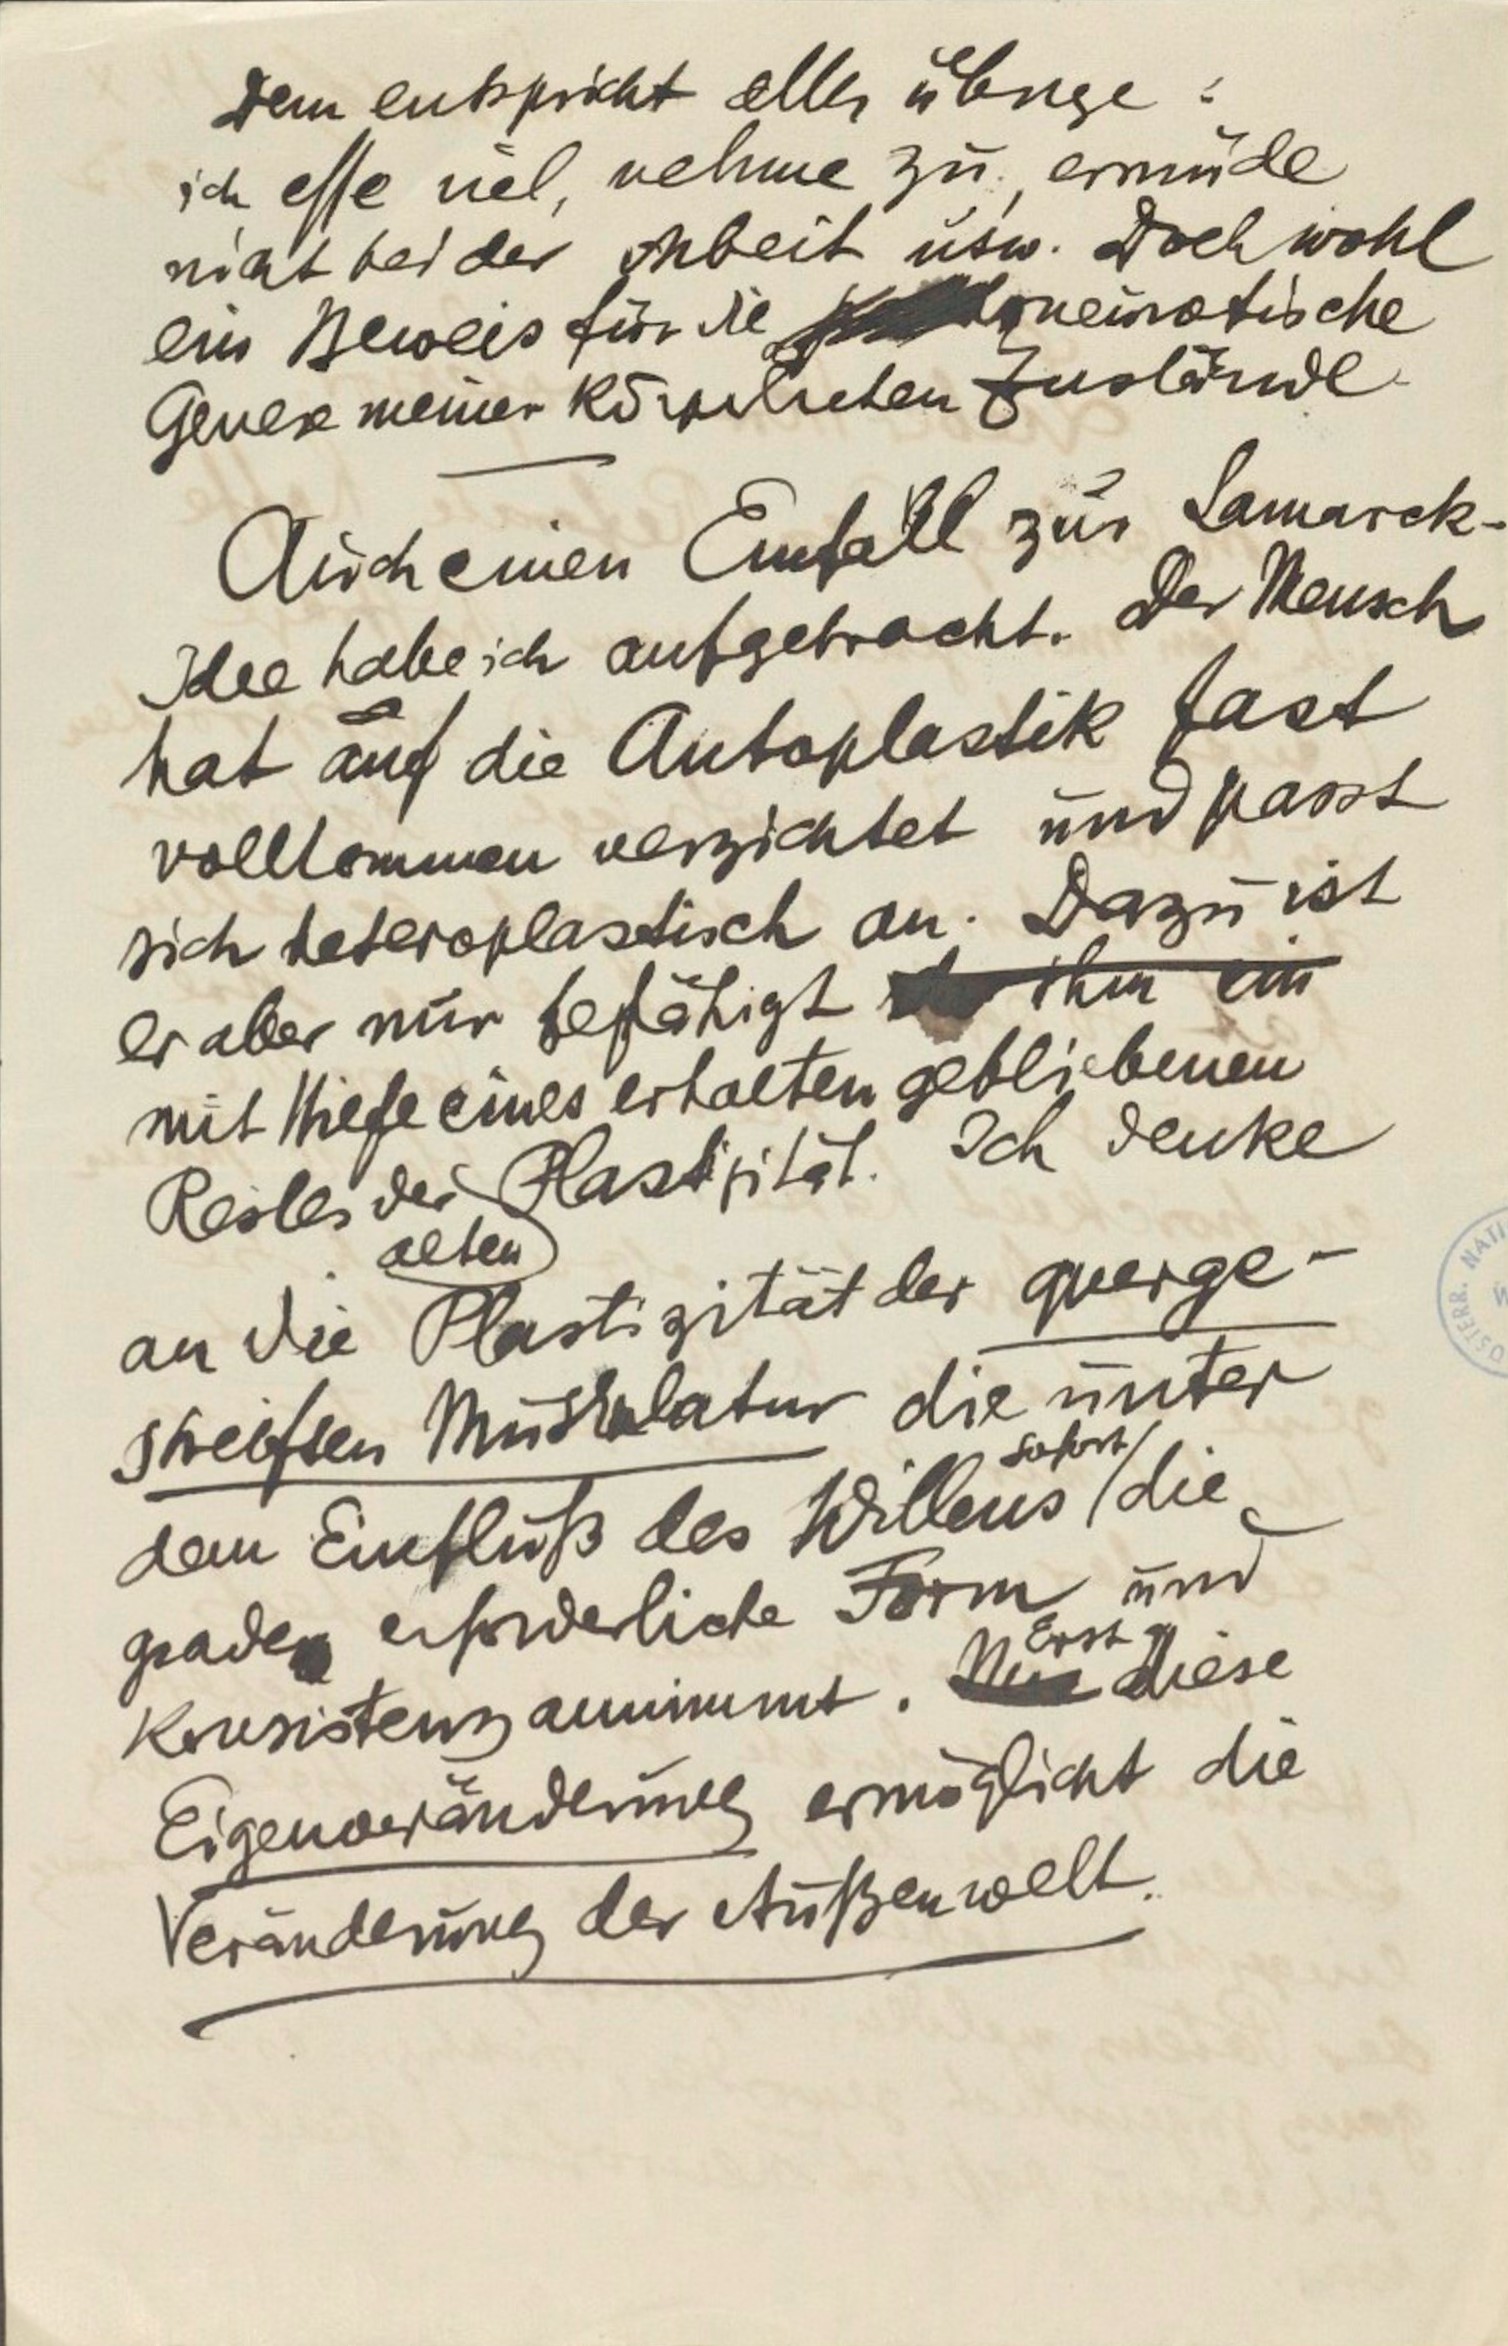 Dem entspricht alles übrige :
ich esse viel, nehme zu, ermüde
nicht bei der Arbeit usw. Doch wohl
ein Beweis für die neurotische
Genese meiner körperlichen Zustände
Auch einen Einfall zur Lamarck-
Idee habe ich aufgebracht. Der Mensch
hat auf die Autoplastik fast
vollkommen verzichtet und passt
sich heteroplastisch an. Dazu ist
er aber nur befähigt ihm ein
mit Hilfe eines erhalten gebliebenen
Restes der Plastizität. Ich denke
alten
an die Plastizität der querge-
streiften Muskulatur die unter
sofort
dem Einfluß des Willens die
grade erforderliche Form und
Erst
Konsistenz annimmt. Nur diese
Eigenveränderung ermöglicht die
Veränderung der Außenwelt.
ÖSTERR. NATI